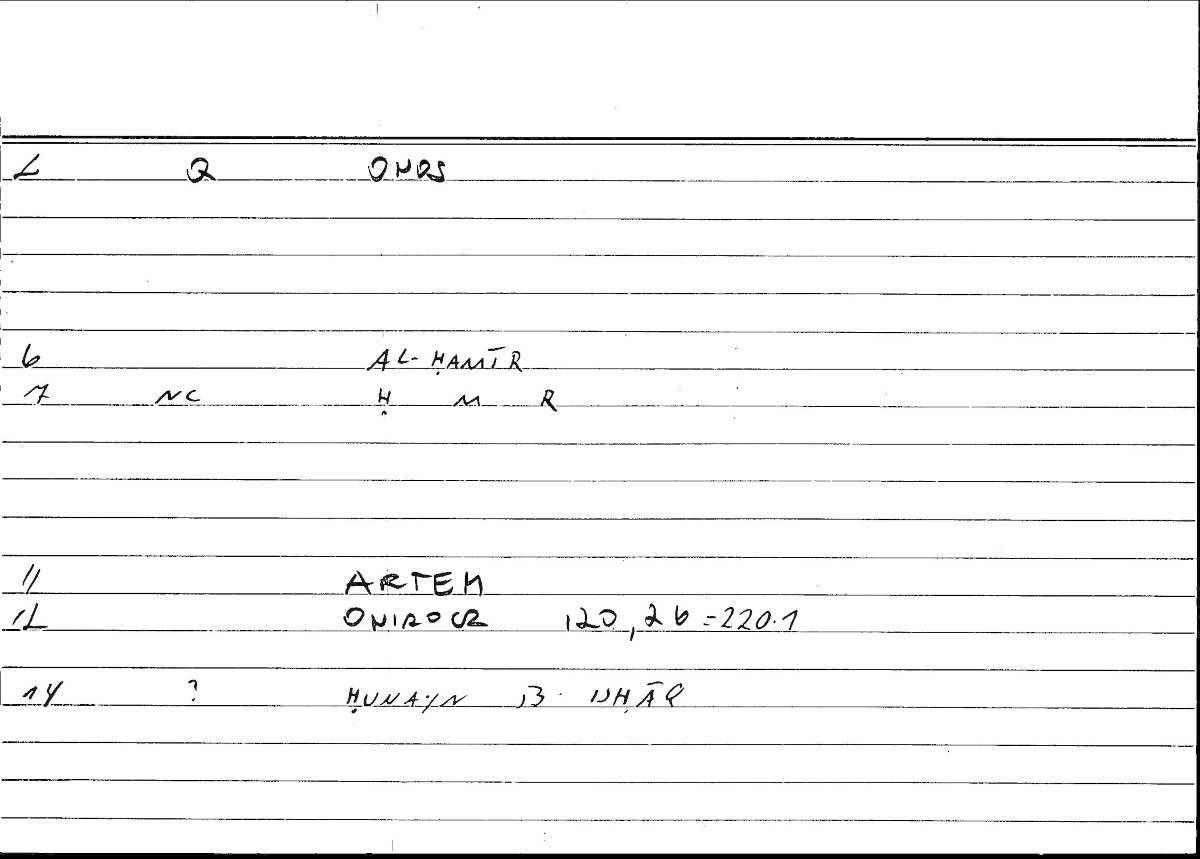 2 Q ONOS
6 AL-ḤAMĪR
7 NC Ḥ M R
11 ARTEM
12 ONIROCR 120,26=220.1
14 ? ḤUNAYN B. ISḤĀQ